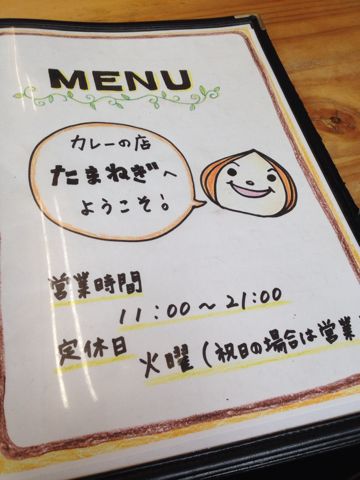 MENU
カレーの店
たまねぎへ
ようこそ!
営業時間
11:00～21:00
定休日
火曜(祝日の場合は営業